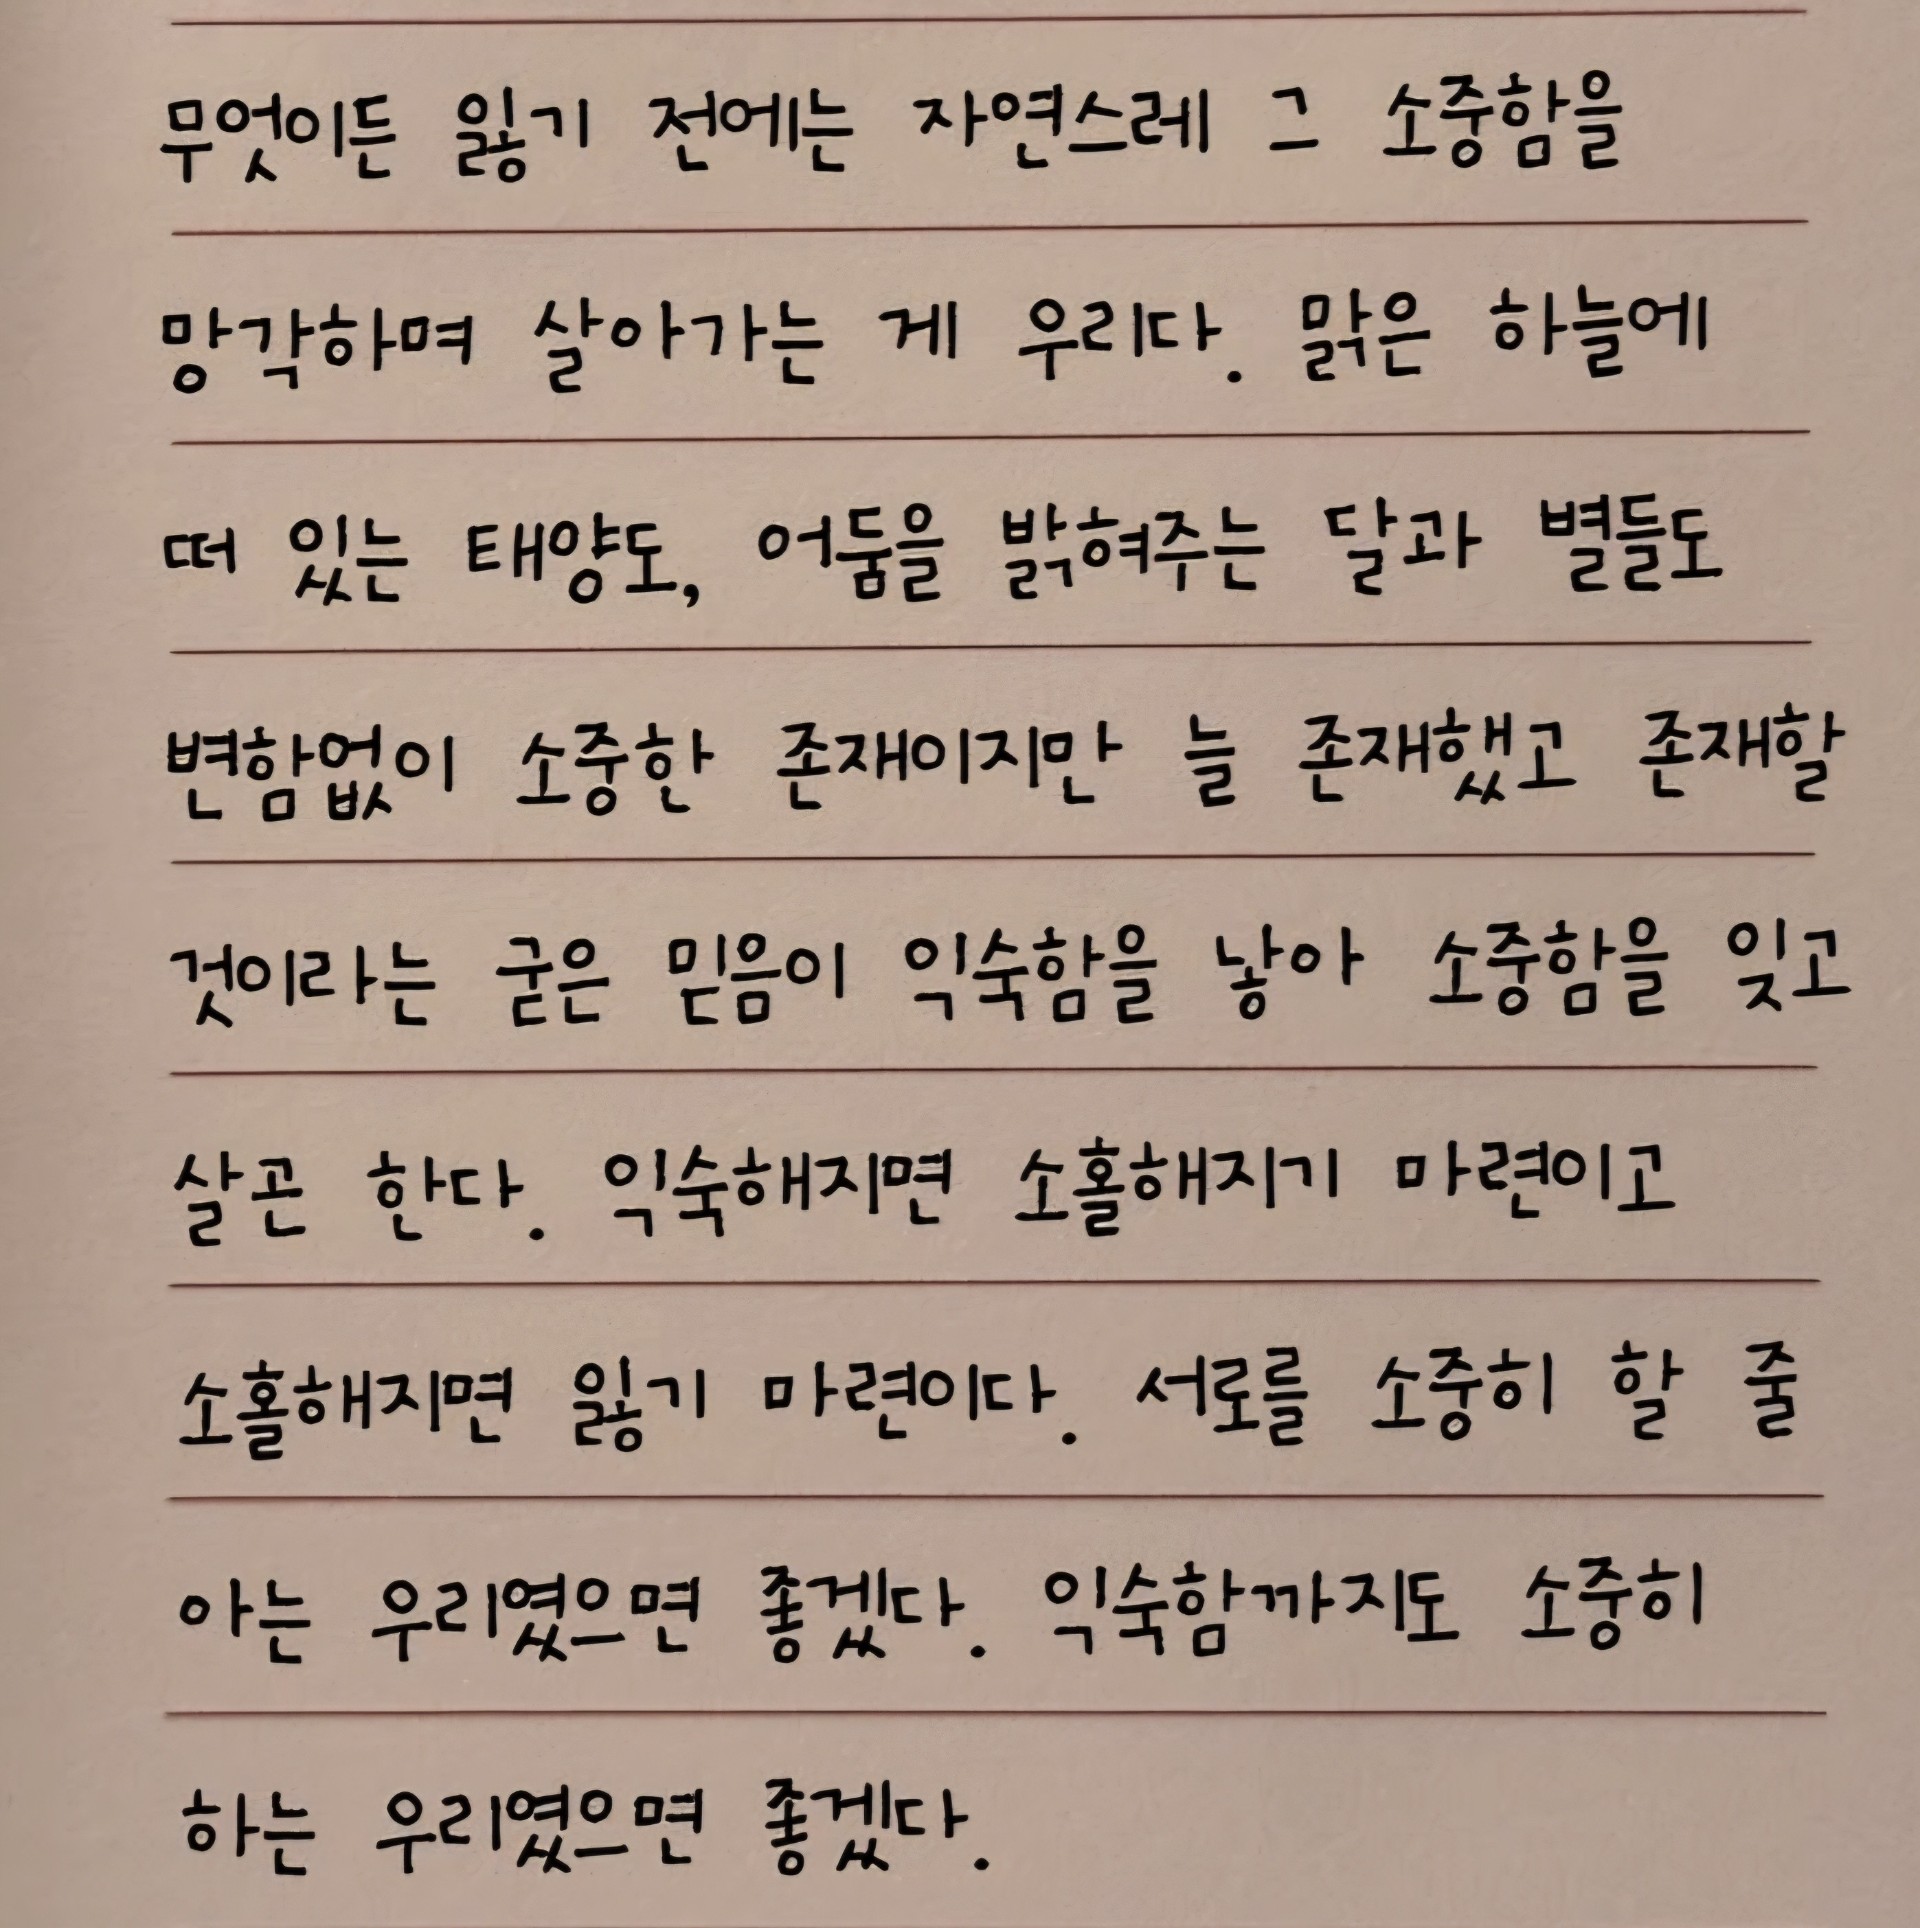 무엇이든 잃기 전에는 자연스레 그 소중함을
망각하며 살아가는 게 우리다. 맑은 하늘에
떠 있는 태양도, 어둠을 밝혀주는 달과 별들도
변함없이 소중한 존재이지만 늘 존재했고 존재할
것이라는 굳은 믿음이 익숙함을 낳아 소중함을 잊고
살곤 한다. 익숙해지면 소홀해지기 마련이고
소홀해지면 잃기 마련이다. 서로를 소중히 할 줄
아는 우리였으면 좋겠다. 익숙함까지도 소중히
하는 우리였으면 좋겠다.